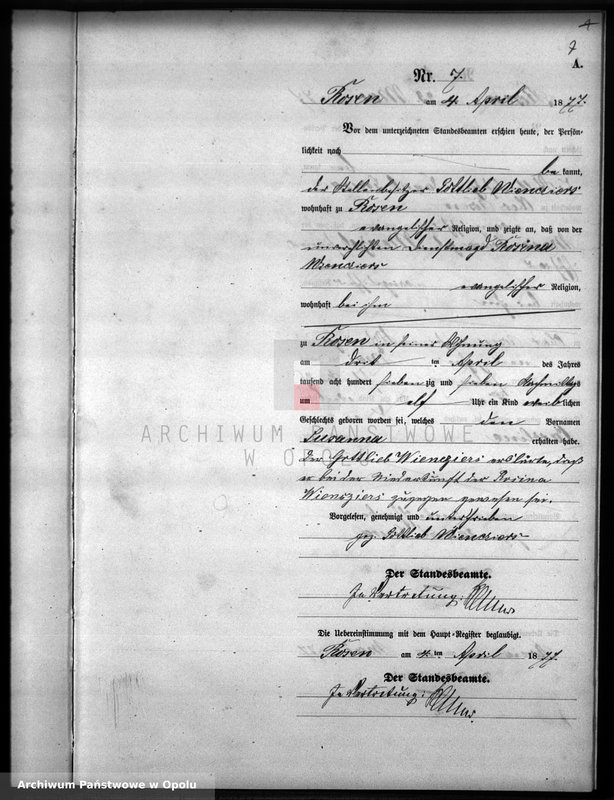 4
7
A.
Nr. 7.
Rosen am 4. April 1877.
Vor dem unterzeichneten Standesbeamten erschien heute, der Persön-
lichkeit nach
be kannt,
der Stellenbesitzer Gottlieb Wienziers
wohnhaft zu Rosen
evangelischer Religion, und zeigte an, daß von der
unverehelichten Dienstmagd Rosina
Wienziers
evangelischer Religion,
wohnhaft bei ihm
zu Rosen in seiner Wohnung
am drit ten April des Jahres
tausend acht hundert sieben zig und sieben Nachmittags
um elf Uhr ein Kind weib lichen
Geschlechts geboren worden sei, welches den Vornamen
Susanna erhalten habe.
Der Gottlieb Wienziers erklärte, daß
er bei der Niederkunft der Rosina
Wienziers zugegen gewesen sei.
Vorgelesen, genehmigt und unterschrieben
gez. Gottlieb Wienziers
Der Standesbeamte.
In Vertretung:
Die Uebereinstimmung mit dem Haupt-Register beglaubigt.
Rosen am 4 ten April 1877.
Der Standesbeamte.
In Vertretung:
ARCHIWUM PAŃSTWOWE
W OPOLU
Archiwum Państwowe w Opolu